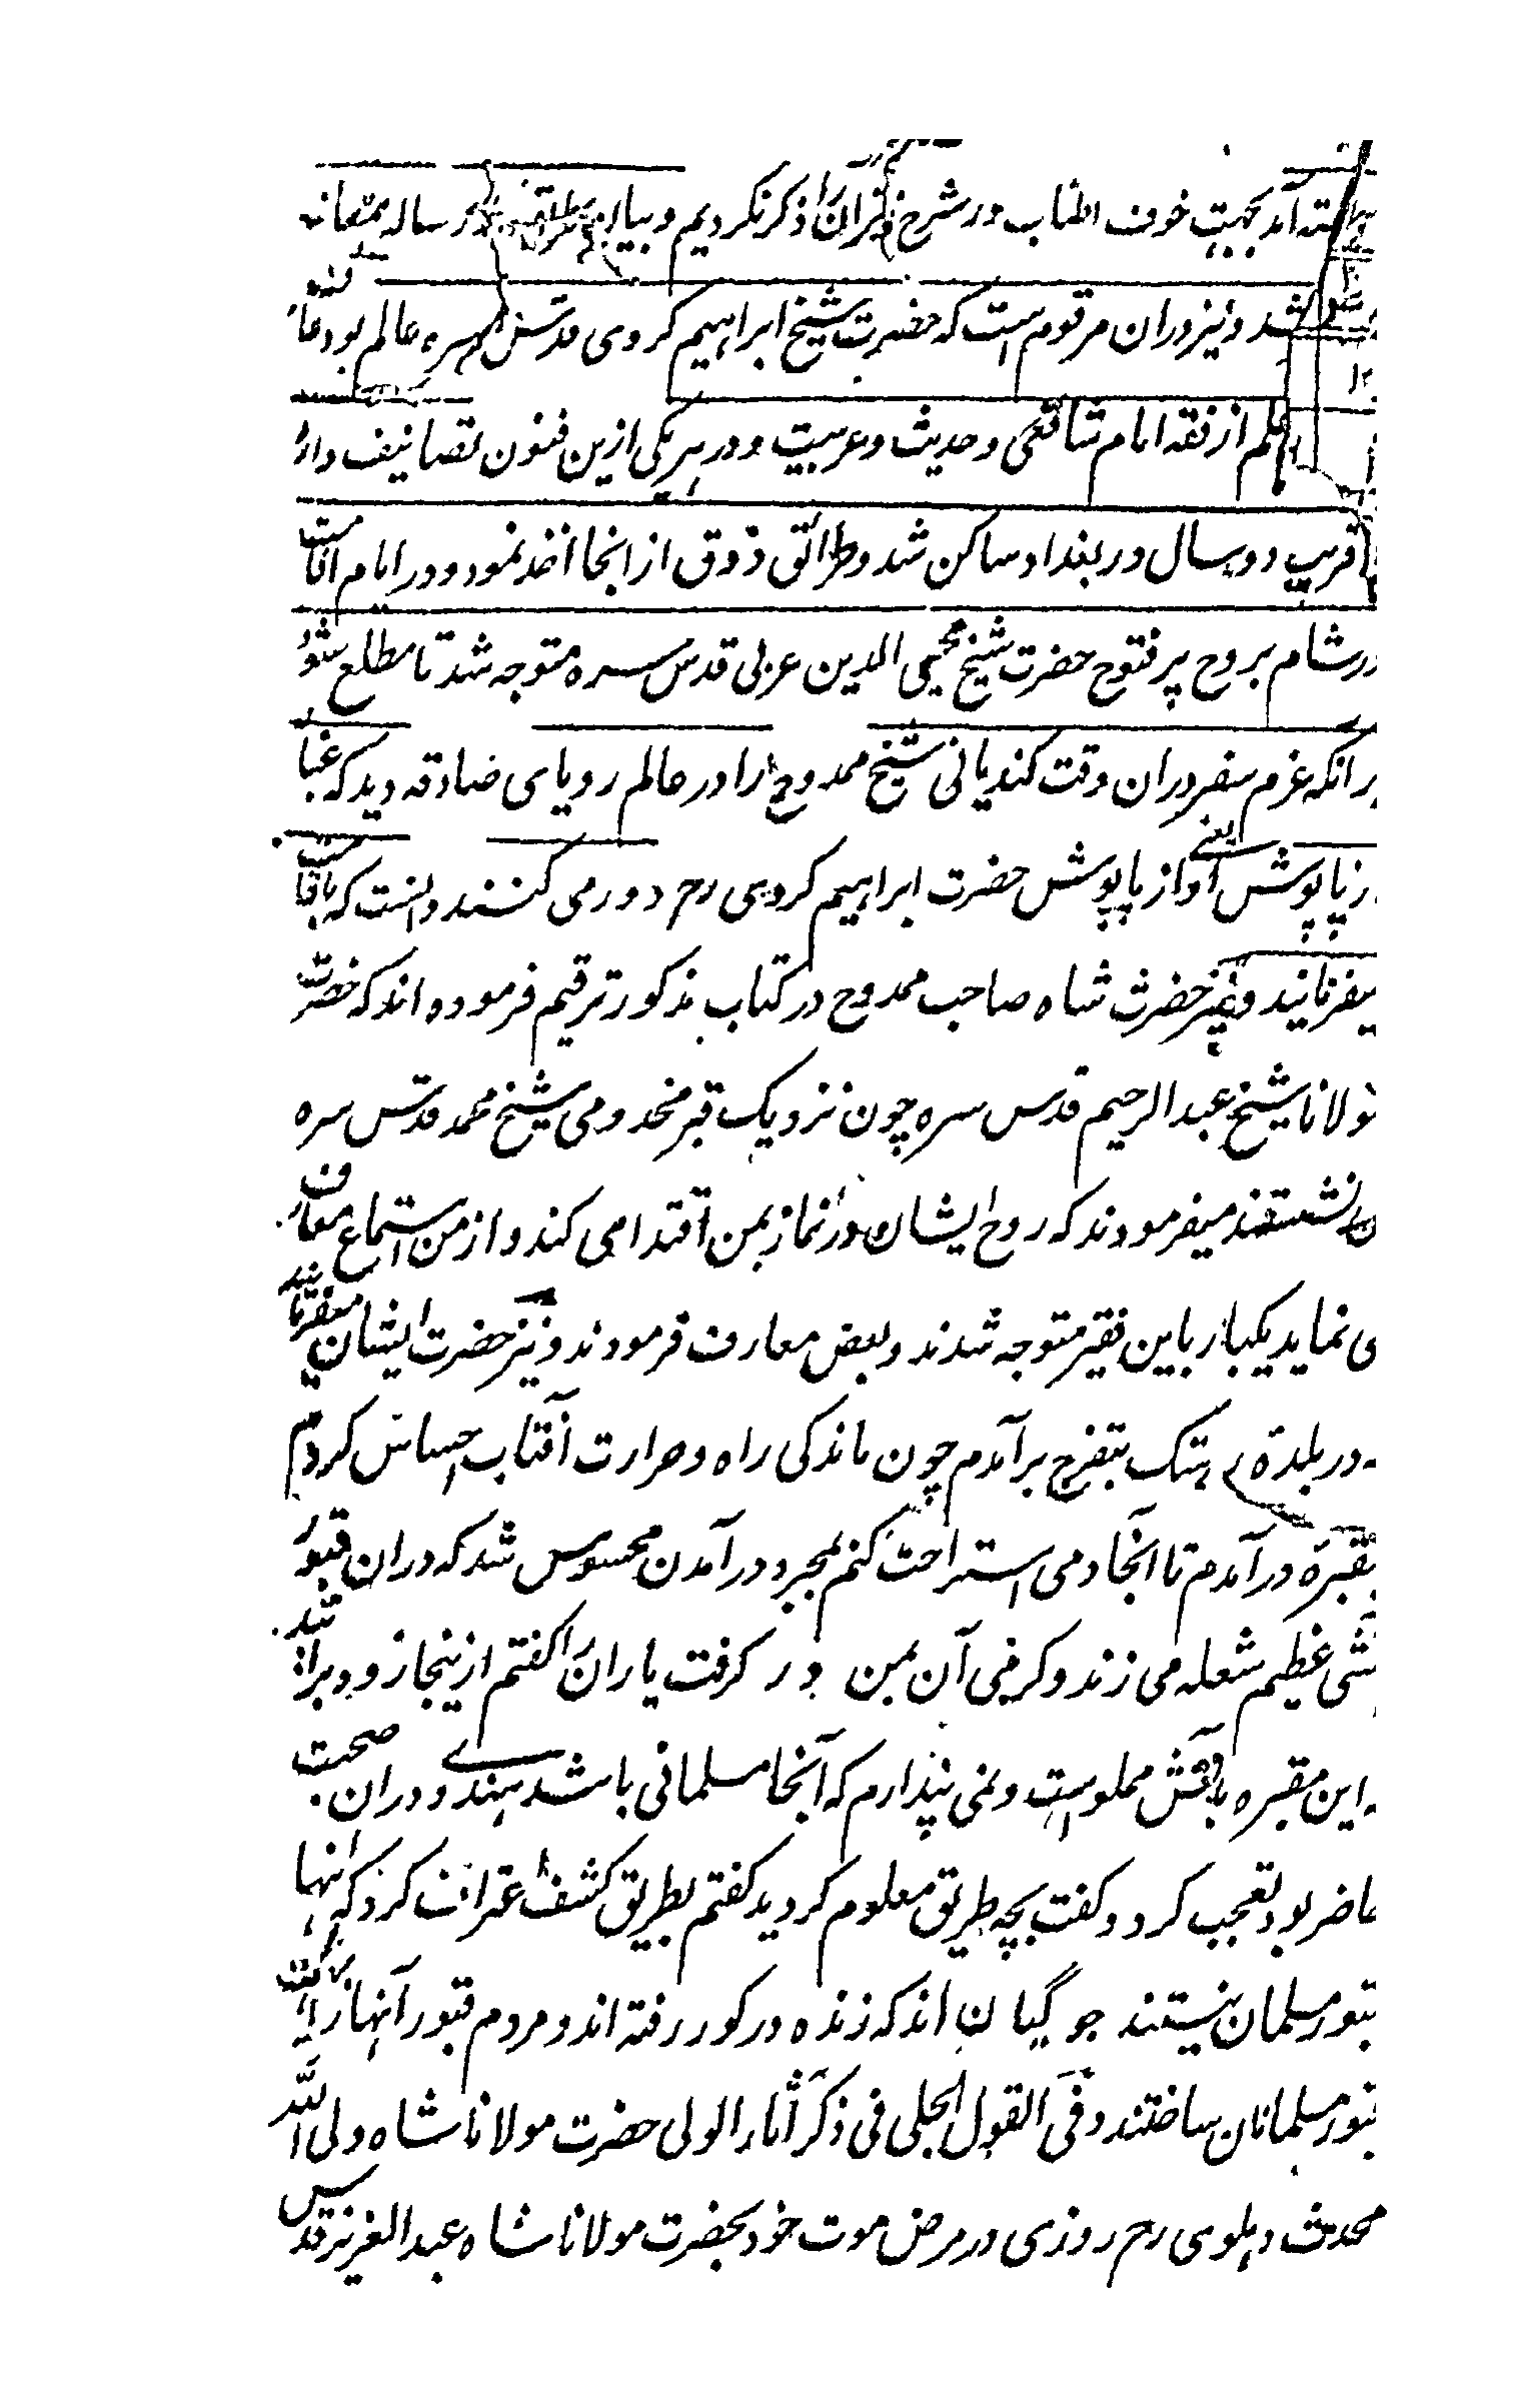 آمد بجهت خوف اطناب در شرح آن را ذکر نکردیم و بیان رساله
شد و نیز دران مرقوم است که حضرت شیخ ابراهیم کردی قدس سره عالم بود
علم از فقه امام شافعی و حدیث و عربیت و در هر یکی ازین فنون تصانیف دارد
قریب دو سال در بغداد ساکن شد و طرائق ذوق از انجا اخذ نمود و در ایام اقامت
در شام بروح پر فتوح حضرت شیخ محیی الدین عربی قدس سره متوجه شد تا مطلع شود
بر انکه عزم سفر دران وقت کند یا نی شیخ ممدوح را در عالم رویای صادقه دید که غبار
از پاپوش یعنی از پاپوش حضرت ابراهیم کردی رح دور می کنند دانست که باقامت
میفرمایند و نیز حضرت شاه صاحب ممدوح در کتاب مذکور ترقیم فرموده اند که حضرت
مولانا شیخ عبد الرحیم قدس سره چون نزدیک قبر مخدومی شیخ محمد قدس سره
می نشستند میفرمودند که روح ایشان در نماز بمن اقتدا می کند و از من استماع معارف
می نماید یکبار باین فقیر متوجه شدند و بعض معارف فرمودند و نیز حضرت ایشان میفرمایند
که در بلدة رهتک بتفرج برآمدم چون ماندگی راه و حرارت آفتاب احساس کردم
بمقبرة درآمدم تا آنجا دمی استراحت کنم بمجرد درآمدن محسوس شد که دران قبور
آتشی عظیم شعله می زند و گرمی آن بمن در گرفت یاران را گفتم ازینجا زود برائید
که این مقبره بآتش مملو است و نمی پندارم که آنجا مسلمانی باشد هندوے دران صحبت
حاضر بود تعجب کرد و گفت بچه طریق معلوم کردید گفتم بطریق کشف اعتراف کرد که اینها
قبور مسلمان نیستند جوگیان اند که زنده در گور رفته اند و مردم قبور آنها را
قبور مسلمانان ساختند و فی القول الجلی فی ذکر آثار الولی حضرت مولانا شاه ولی الله
محدث دهلوی رح روزی در مرض موت خود بحضرت مولانا شاه عبد العزیز قدس